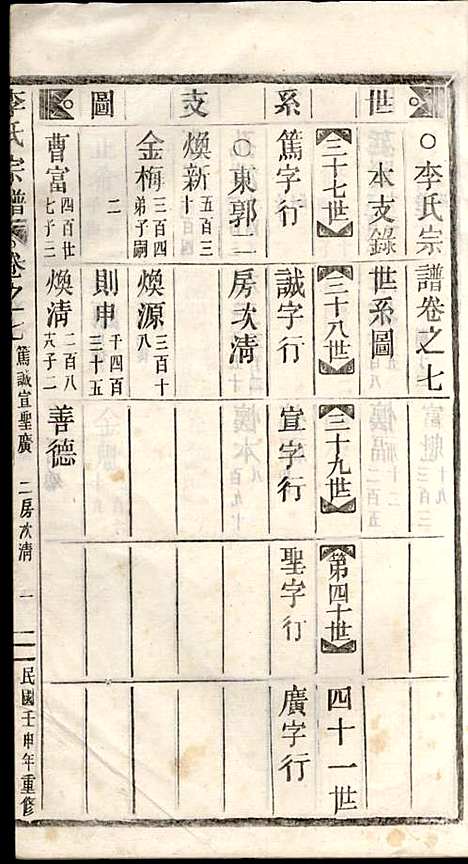 世系支圖
○李氏宗譜卷之一七
本支錄 世系圖
三十七世 三十八世 三十九世 第四十世 四十一世
篤字行 誠字行 宣字行 聖字行 廣字行
○東郭二一 房次清
煥新 五百三十
金梅 三百四 弟子嗣 煥源 三百十八
二 則申 千四百三十五
曹富 四百世七 子三 煥清 二百八 六子二 善德
李氏宗譜 卷之一七 篤誠宣聖廣 二房次清 一 民國壬申年重修